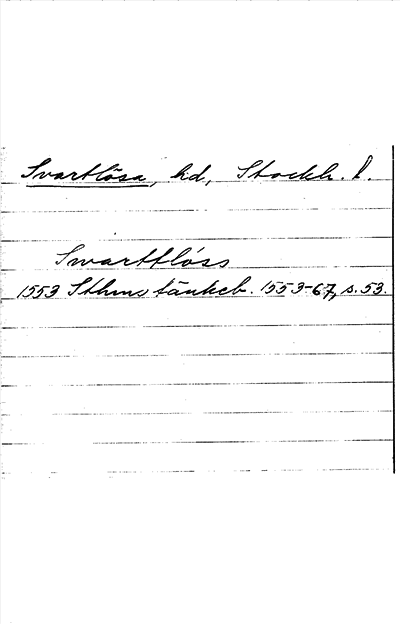 Svartlösa, hd, Stockh. l.
Swartlöss
1553 Sthms tänkeb. 1553-67, s. 53.